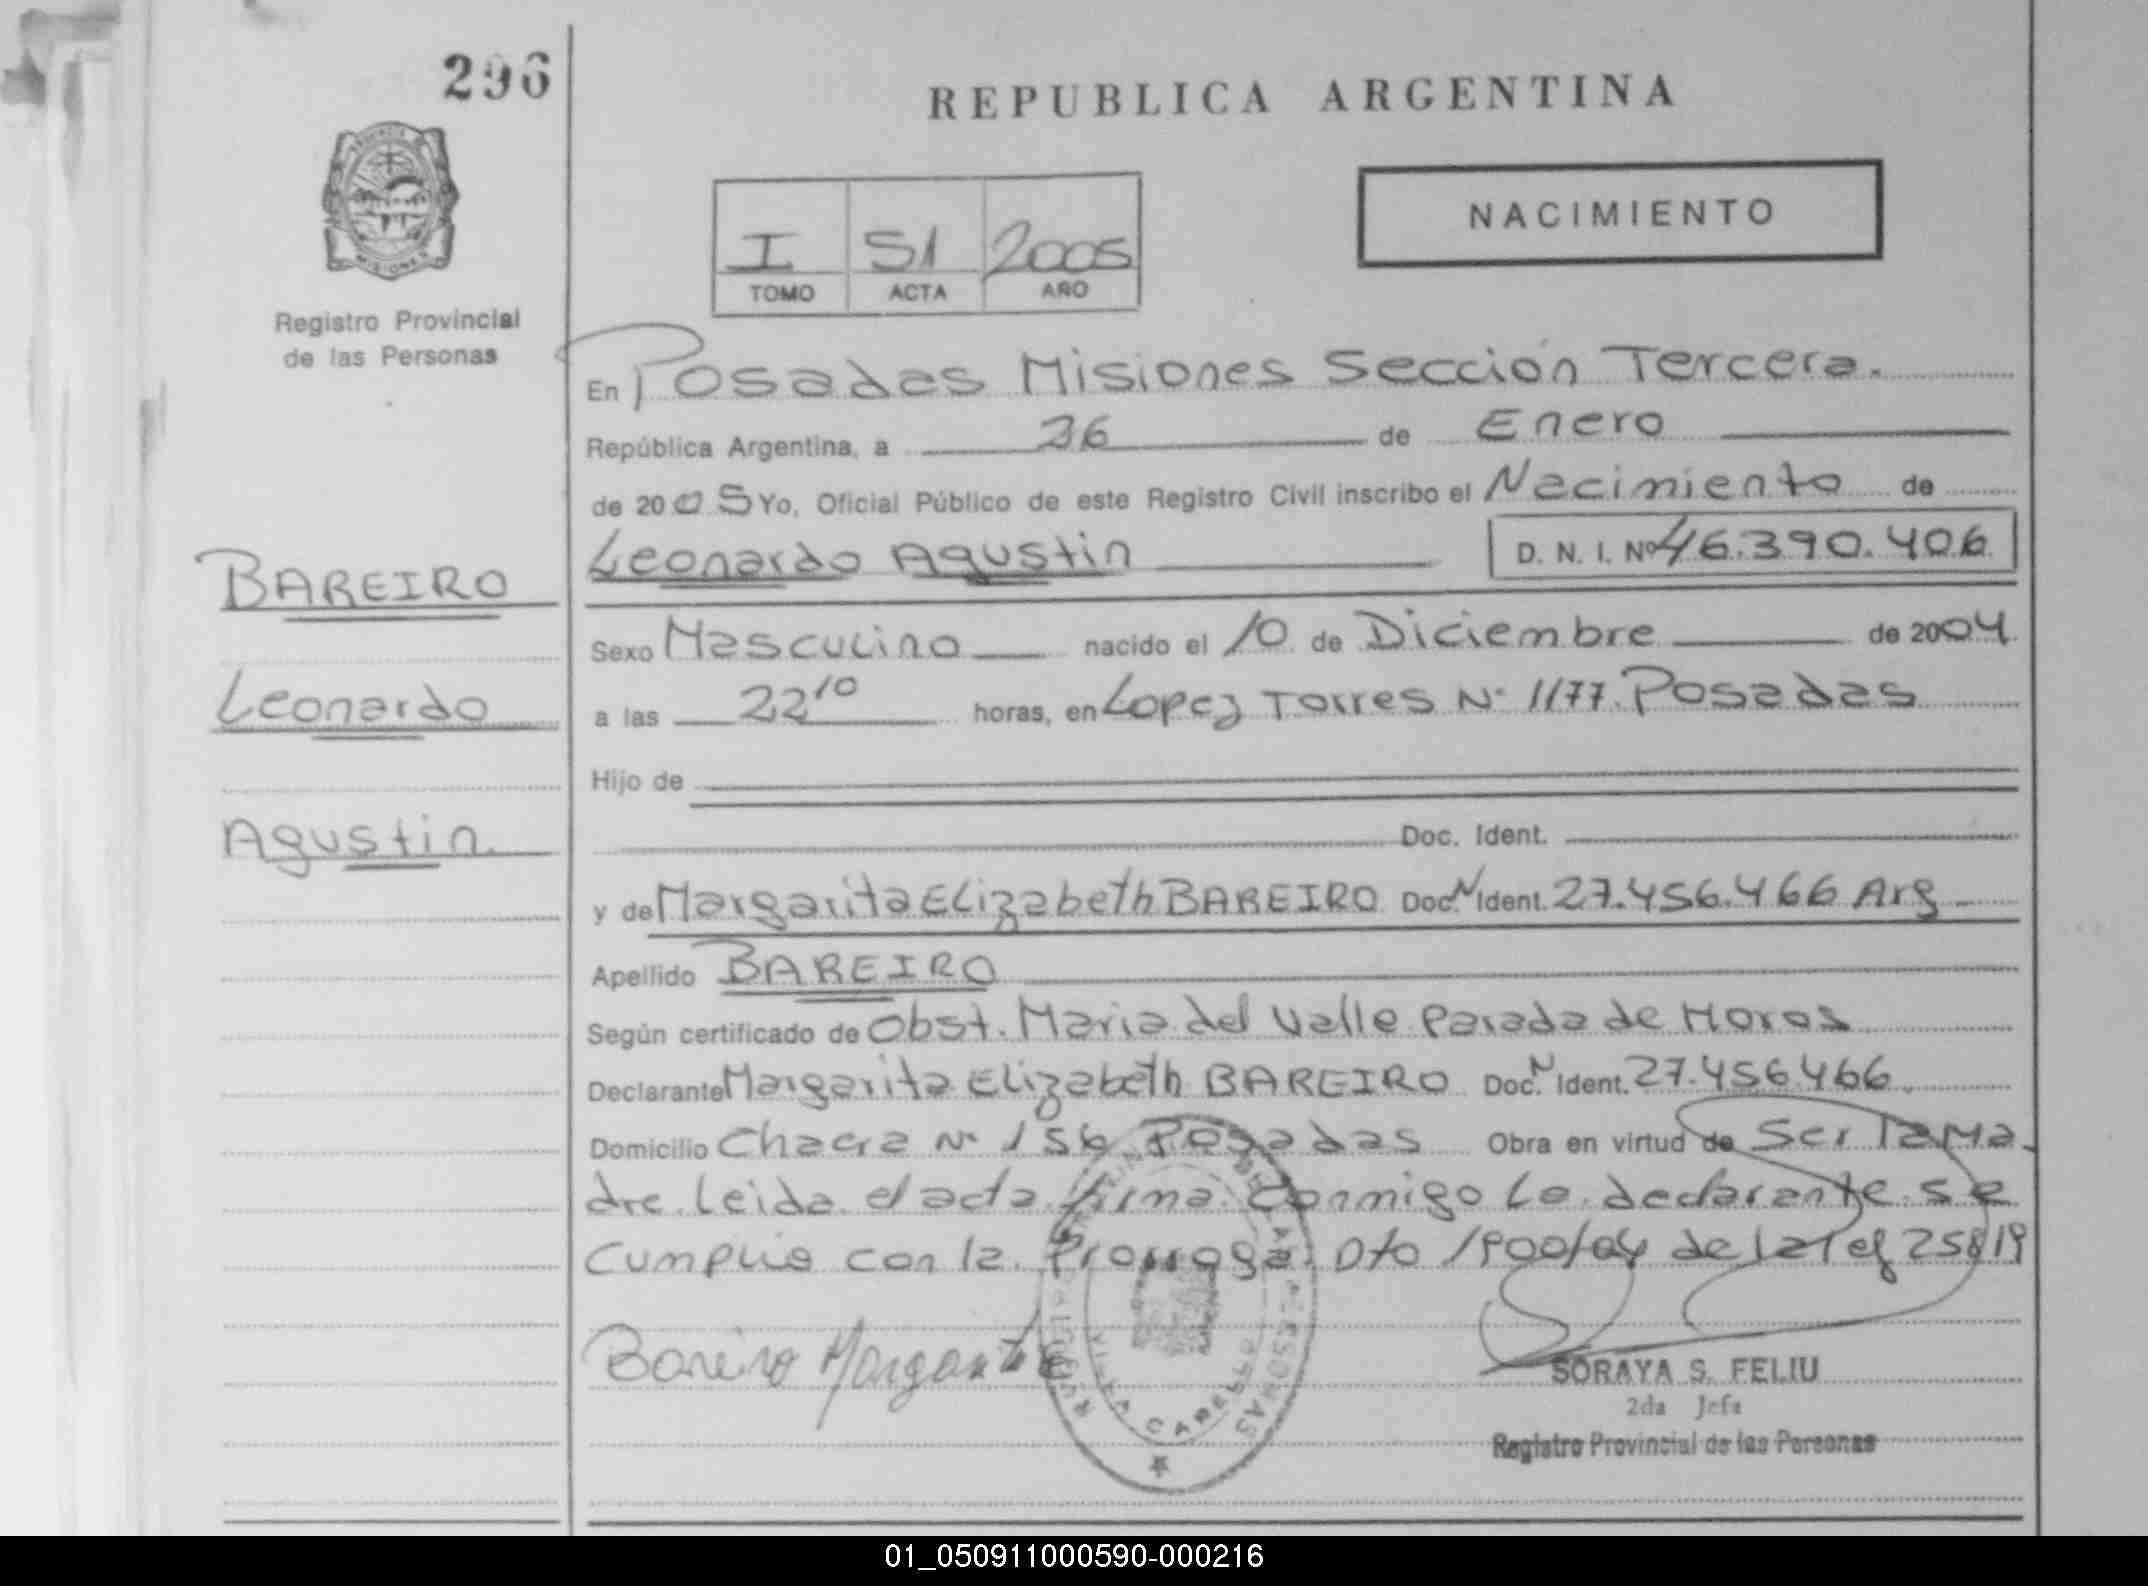 296
REPUBLICA ARGENTINA
NACIMIENTO
I S1 2005
TOMO ACTA AÑO
MISIONES
Registro Provincial
de las Personas
En Posadas Misiones Sección Tercera.
República Argentina, a 26 de Enero
de 2005 Yo, Oficial Público de este Registro Civil inscribo el Nacimiento de
BAREIRO
Leonardo Agustin D. N. I. Nº 46.390.406
Sexo Masculino nacido el 10 de Diciembre de 2004
Leonardo
a las 22 10 horas, en Lopez Torres Nº 1177. Posadas
Hijo de
Agustin.
Doc. Ident.
y de Margarita Elizabeth BAREIRO Doc. N Ident. 27.456.466 Arg
Apellido BAREIRO
Según certificado de Obst. Maria del Valle Parada de Horos
Declarante Margarita Elizabeth BAREIRO Doc. N Ident. 27.456.466
Domicilio Chacra Nº 156 Posadas Obra en virtud de Ser la Ma-
dre. Leida el acta firma Conmigo la declarante se
Cumplio con la Prorroga Dto 1900/04 de la ley 25819
Bareiro Margarita
VILLA CABELLO
SORAYA S. FELIU
2da Jefe
Registro Provincial de las Personas
01_050911000590-000216